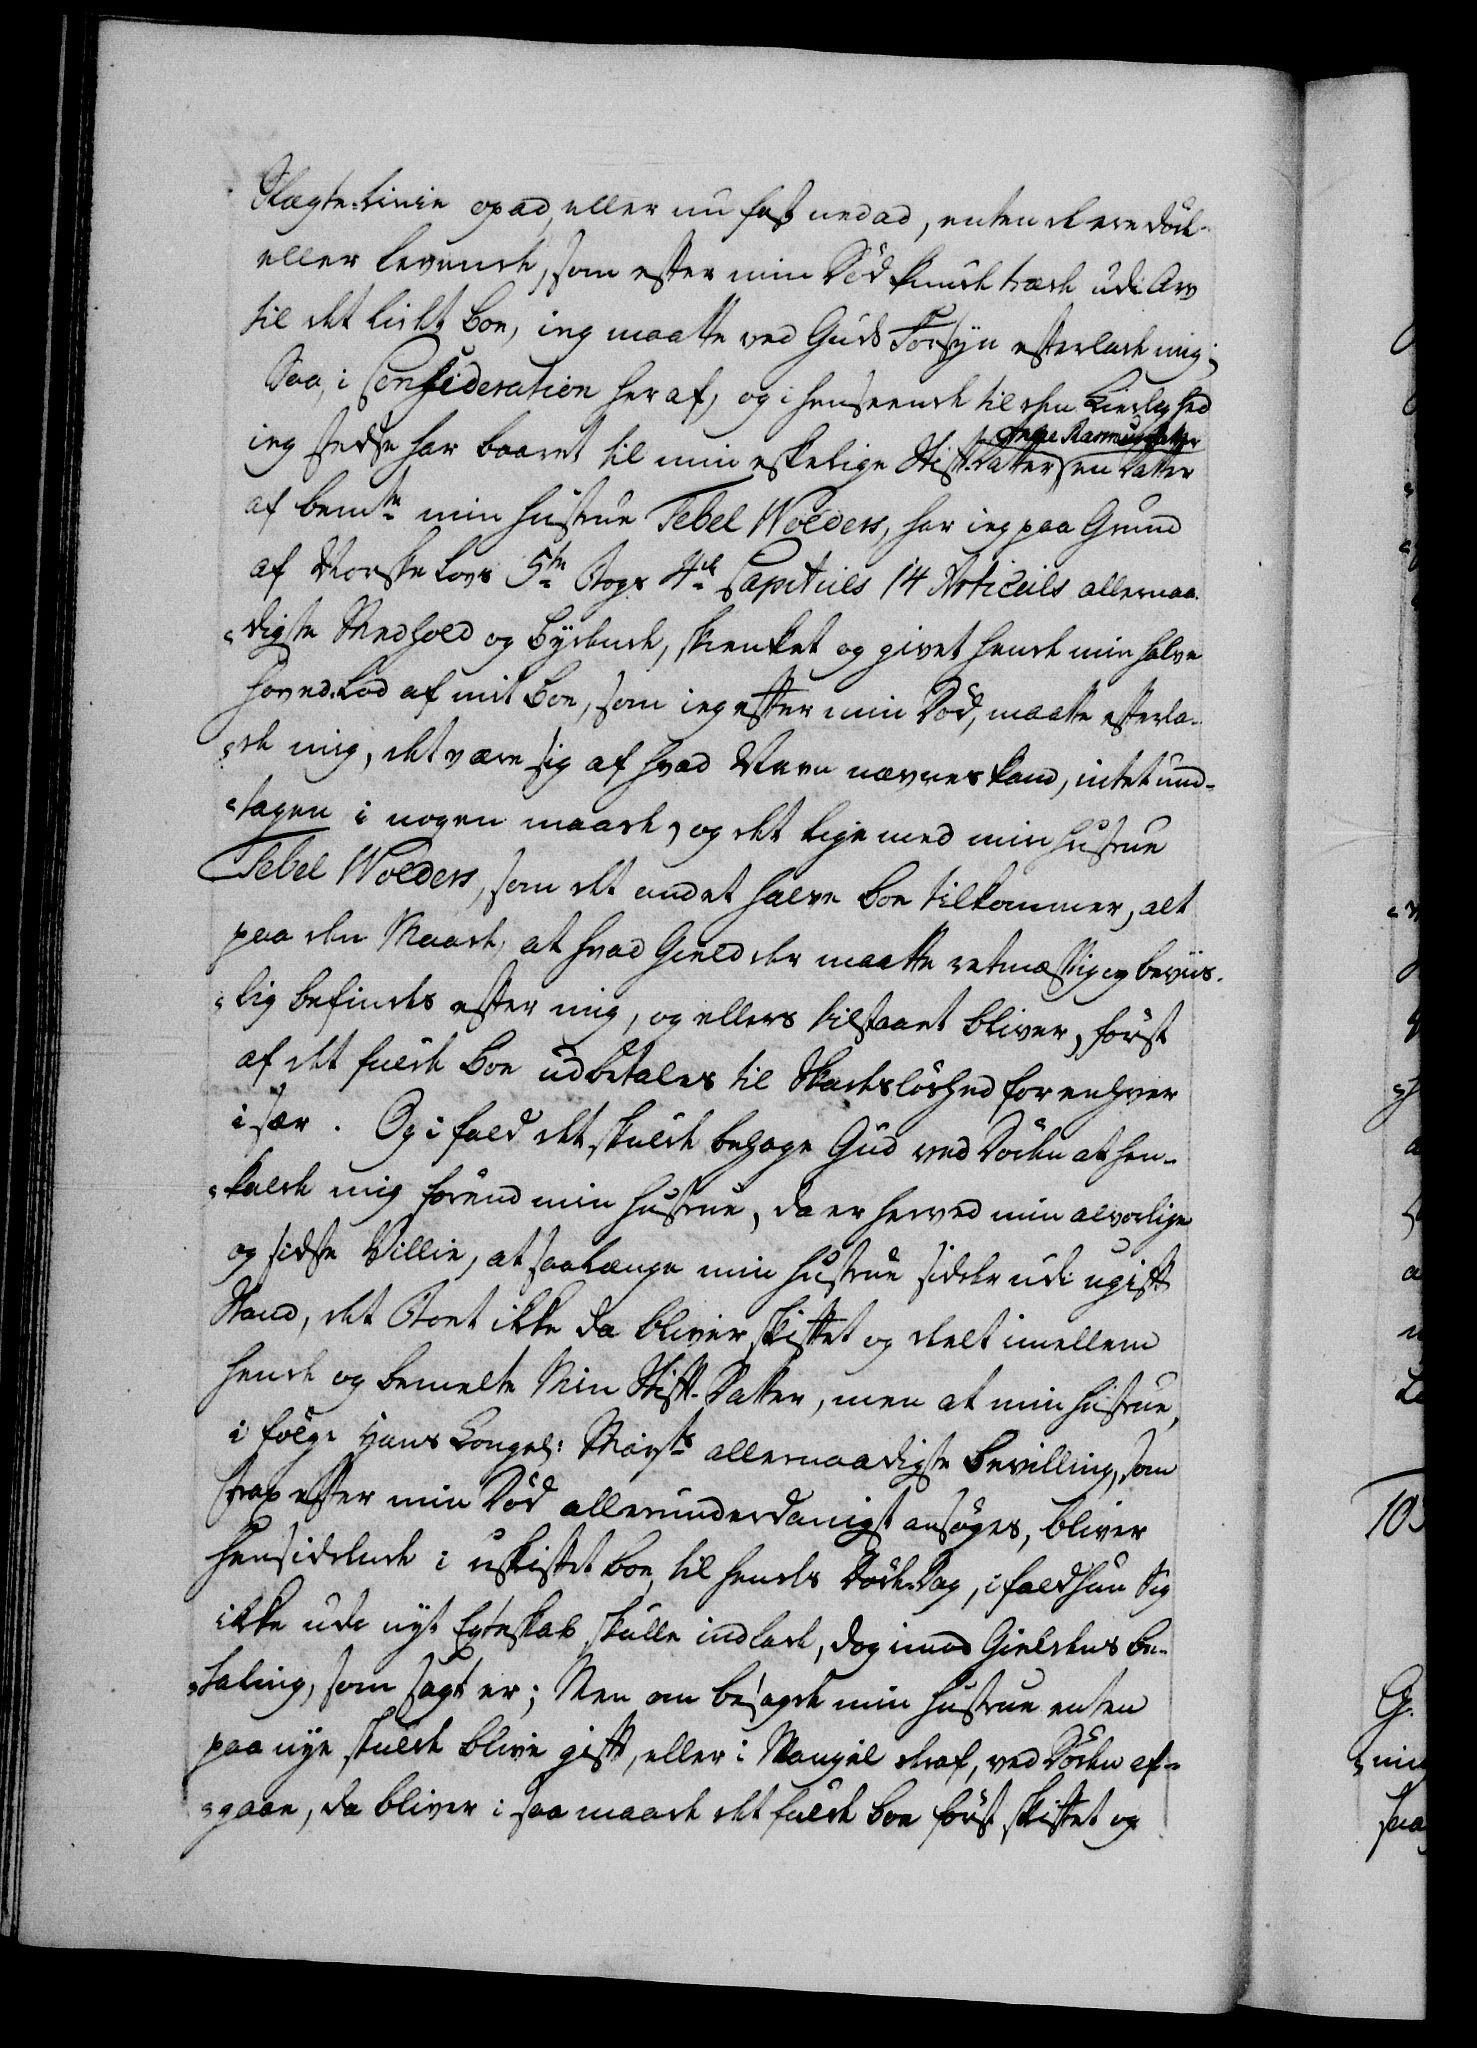 Slægte-Linie op ad, eller nu fast ned ad, enten de ere døde
eller levende, som efter min Død kunde træde udi Arv
til det lidet Boe, ieg maatte ved Guds Forsyn efterlade mig;
Saa, i Consideration heraf, og i henseende til den Kierlighed
Rasmusdatter
ieg stedse har baaret til min eskelige Stifdatter, en Datter
af bemte min Hustrue Tebel Wolders, har ieg paa Grund
af Norske Lovs 5te Bogs 4de Capituls 14 Articuls allernaa-
digste Medhold og Bydende, skienket og givet hende min halve
Hoved-Lod af mit Boe, som ieg efter min Død, maatte efterla-
de mig, det være sig af hvad Navn nævnes kand, intet und-
tagen i nogen maade, og det lige med min Hustrue
Tebel Wolders, som det andet halve Boe tilkommer, alt
paa den Maade, at hvad Gield der maatte retmæssig og beviis-
lig befindes efter mig, og ellers tilstaaet bliver, først
af det fulde Boe udbetales til Skadesløshed for enhver
i sær. Og i fald det skulde behage Gud ved Døden at hen-
kalde mig forend min Hustrue, da er herved min alvorlige
og sidste Villie, at saalænge min Hustrue sidder udi ugift
Stand, det Boet ikke da bliver skiftet og deelt imellem
hende og bemelte Min Stiff-Datter, men at min Hustrue,
i følge Hans Kongel: Mayts allernaadigste Bevilling, som
strax efter min Død allerunderdanigst ansøges, bliver
hensiddende i uskiftet Boe, til hendes Døde-Dag, i fald hun Sig
ikke udi nyt Egteskab skulle indlade, dog imod Gieldens be-
taling, som sagt er; Men om besagde min Hustrue enten
paa nye skulde blive gift, eller i Mangel deraf, ved Døden af-
gaae, da bliver i saa maade det fulde Boe først skiftet og